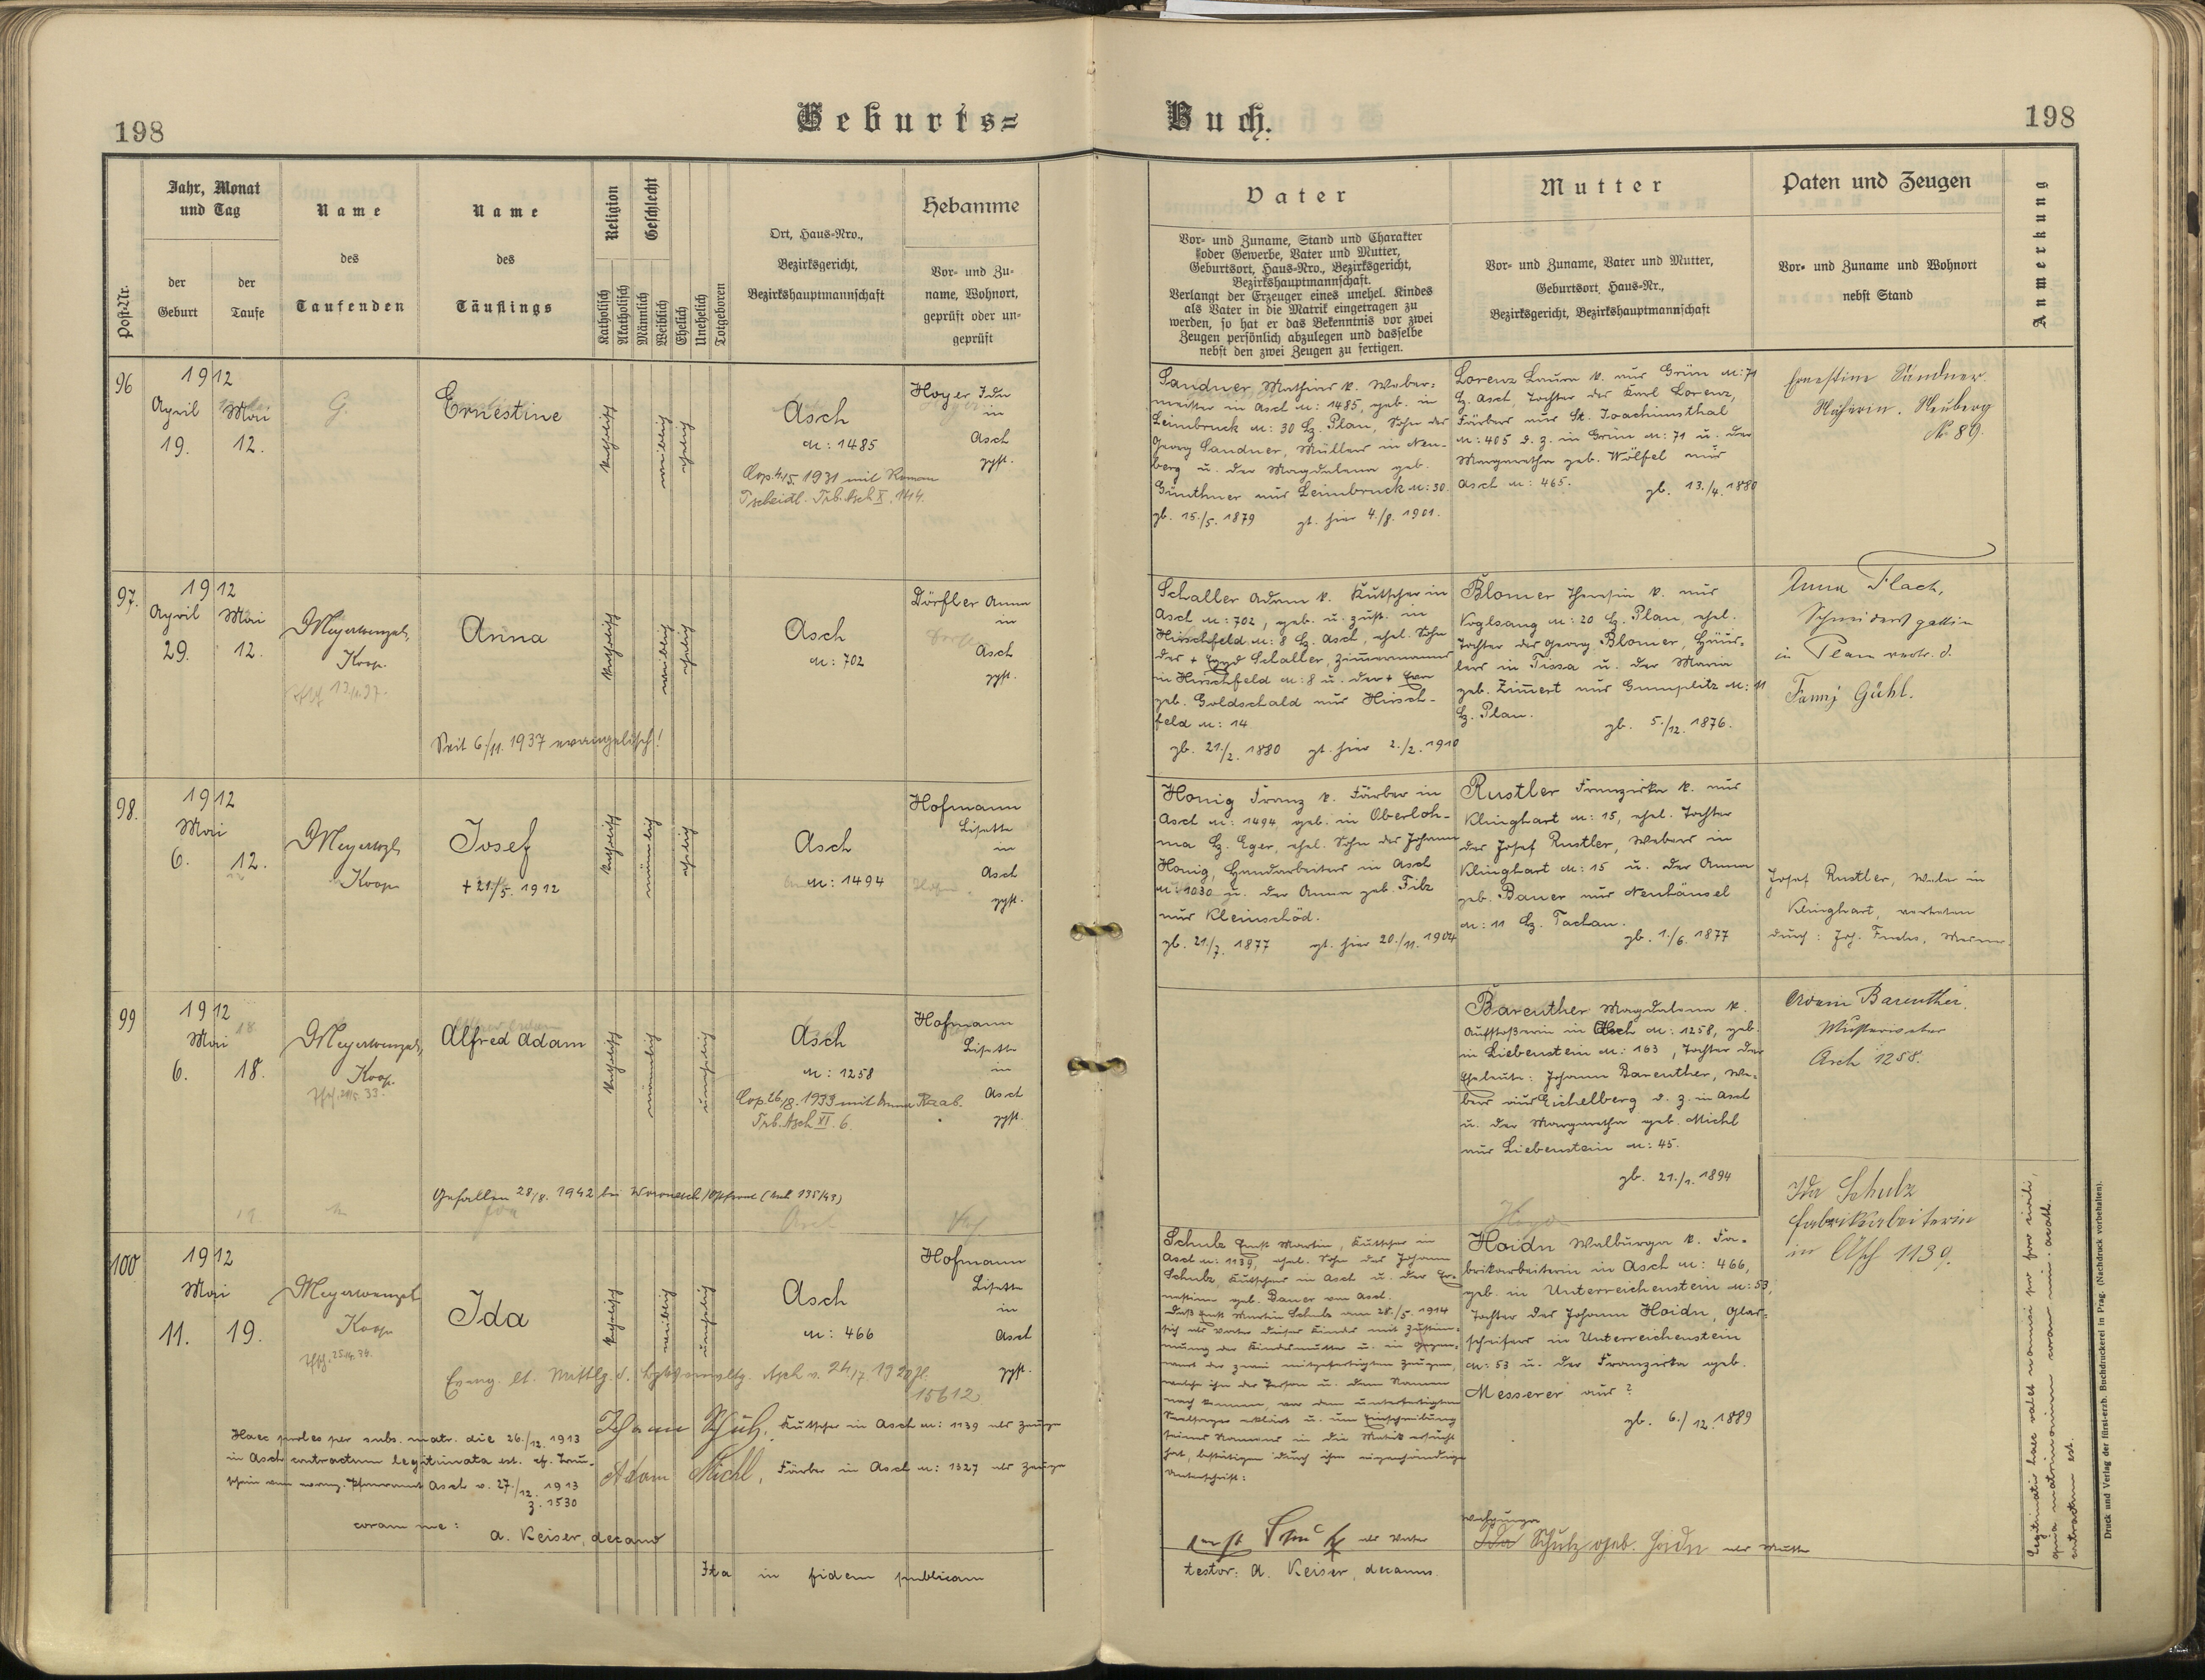 198
Geburts=
Buch.
198
Post-Nr.
Jahr, Monat
und Tag
der
Geburt
der
Taufe
Name
des
Taufenden
Name
des
Täuflings
Religion
Katholisch
Akatholisch
Geschlecht
Männlich
Weiblich
Ehelich
Unehelich
Totgeboren
Ort, Haus-Nro.,
Bezirksgericht,
Bezirkshauptmannschaft
Hebamme
Vor- und Zu-
name, Wohnort,
geprüft oder un-
geprüft
Vater
Vor- und Zuname, Stand und Charakter
oder Gewerbe, Vater und Mutter,
Geburtsort, Haus-Nro., Bezirksgericht,
Bezirkshauptmannschaft.
Verlangt der Erzeuger eines unehel. Kindes
als Vater in die Matrik eingetragen zu
werden, so hat er das Bekenntnis vor zwei
Zeugen persönlich abzulegen und dasselbe
nebst den zwei Zeugen zu fertigen.
Mutter
Vor- und Zuname, Vater und Mutter,
Geburtsort, Haus-Nr.,
Bezirksgericht, Bezirkshauptmannschaft
Paten und Zeugen
Vor- und Zuname und Wohnort
nebst Stand
Anmerkung
96
1912
April Mai
19. 12.
G.
Ernestine
katholisch
weiblich
ehelich
Asch
N: 1485
Cop. 4./5. 1931 mit Roman
Tscheidl. Trb. Asch X. 144.
Hoyer Ida
in
Asch
gpft.
Sandner Mathias k. Weber-
meister in Asch N: 1485, geb. in
Leimbruck N: 30 Bz. Plan, Sohn des
Georg Sandner, Müllers in Neu-
berg u. der Magdalena geb.
Günthner aus Leimbruck N: 30.
gb. 15./5. 1879 gt. hier 4./8. 1901.
Lorenz Laura k. aus Grün N: 71
Bz. Asch, Tochter des Karl Lorenz,
Färbers aus St. Joachimsthal
N: 405 d. z. in Grün N: 71 u. der
Margaretha geb. Wölfel aus
Asch N: 465. gb. 13./4. 1880
Ernestine Sandner
Näherin. Neuberg
No 89.
97.
1912
April Mai
29. 12.
Meyerwenzel,
Koop.
Anna
Seit 6./11. 1937 evangelisch!
katholisch
weiblich
ehelich
Asch
N: 702
Dörfler Anna
in
Asch
gpft.
Schaller Adam k. Kutscher in
Asch N: 702, geb. u. zust. in
Hirschfeld N: 8 Bz. Asch, ehel. Sohn
des + Egyd Schaller, Zimermanns
in Hirschfeld N: 8 u. der + Eva
geb. Goldschald aus Hirsch-
feld N: 14
gb. 21./2. 1880 gt. hier 2./2. 1910
Blomer Theresia k. aus
Voglsang N: 20 Bz. Plan, ehel.
Tochter des Georg Blomer, Häus-
lers in Tissa u. der Maria
geb. Zimert aus Gumplitz N: 11
Bz. Plan. gb. 5./12. 1876.
Anna Flach,
Schneidersgattin
in Plan vertr. d.
Fanny Gühl.
98.
1912
Mai
6. 12.
Meyerwzl
Koop.
Josef
+ 21./5. 1912
katholisch
männlich
ehelich
Asch
N: 1494
Hofmann
Lisette
in
Asch
gpft.
Honig Franz k. Färber in
Asch N: 1494, geb. in Oberloh-
ma Bz. Eger, ehel. Sohn des Johann
Honig, Handarbeiters in Asch
N: 1030 u. der Anna geb. Filz
aus Kleinschöd.
gb. 21./7. 1877 gt. hier 20./11. 1904
Rustler Franziska k. aus
Klinghart N: 15, ehel. Tochter
des Josef Rustler, Webers in
Klinghart N: 15 u. der Anna
geb. Bauer aus Neuhäusel
N: 11 Bz. Tachau.
gb. 1./6. 1877
Josef Rustler, Weber in
Klinghart, vertreten
durch: Jos. Fuchs, Mesner.
99
1912
Mai
6. 18.
Meyerwenzel,
Koop.
Alfred Adam
Gefallen 28./8. 1942 bei Woronesch/Ostfront (Anh. 135/43)
katholisch
männlich
unehelich
Asch
N: 1258
Cop. 26./8. 1933 mit Anna Raab.
Trb. Asch XI. 6.
Hofmann
Lisette
in
Asch
gpft.
Bareuther Magdalena k.
Aufstoßerin in Asch N: 1258, geb.
in Liebenstein N: 163, Tochter der
Eheleute: Johann Bareuther, We-
bers aus Eichelberg d. z. in Asch
u. der Margaretha geb. Michl
aus Liebenstein N: 45.
gb. 21./1. 1894
Adam Bareuther
Asch 1258.
100
1912
Mai
11. 19.
Meyerwenzel
Koop.
Ida
katholisch
weiblich
unehelich
Asch
N: 466
Hofmann
Lisette
in
Asch
gpft.
15612
Schulz Ernst Martin, Kutscher in
Asch N: 1139, ehel. Sohn des Johann
Schulz, Kutschers in Asch u. der Er-
nestine geb. Bauer von Asch.
Daß Ernst Martin Schulz am 28./5. 1914
sich als Vater dieses Kindes mit Zustim-
mung der Kindesmutter u. in Gegen-
wart der zwei mitgefertigten Zeugen,
welche ihn der Person u. dem Namen
nach kennen, vor dem unterfertigten
Seelsorger erklärt u. um Einschreibung
seines Namens in die Matrik ersucht
hat, bestätigen durch ihre eigenhändige
Unterschrift:
Haidn Walburga k. Fa-
brikarbeiterin in Asch N: 466,
geb. in Unterreichenstein N: 53,
Tochter des Johann Haidn, Glas-
schleifers in Unterreichenstein
N: 53 u. der Franziska geb.
Messerer aus ?
gb. 6./12. 1889
Ida Schulz
Fabrikarbeiterin
in Asch 1139.
Haec proles per subs. matr. die 26./12. 1913
in Asch contractum legitimata est. cf. Trau-
schein vom evang. Pfarramt Asch v. 27./12. 1913
z. 1530
coram me:
A. Keiser, decano
Johann Schulz, Kutscher in Asch N: 1139 als Zeuge
Adam Michl, Färber in Asch N: 1327 als Zeuge
Ita in fidem publicam
Ernst Schulz als Vater
testor: A. Keiser, decanus.
Walpurga
Ida Schulz geb. Haidn als Mutter
Legitimatio haec valet nonnisi pro foro civili,
quia matrimonium coram min. acath.
contractum est.
Druck und Verlag der fürst-erzb. Buchdruckerei in Prag. (Nachdruck vorbehalten).